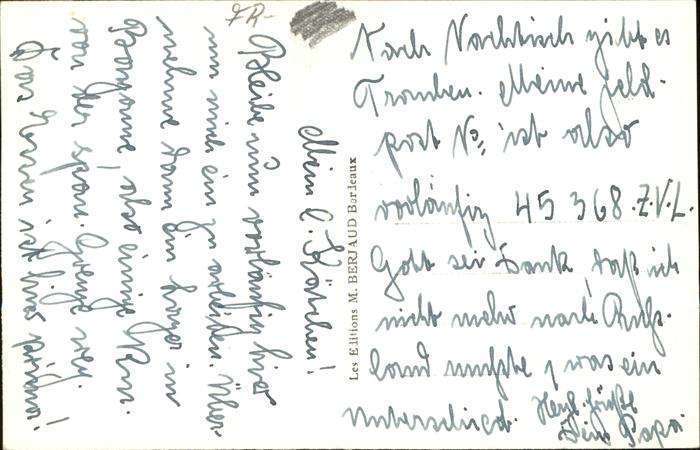 FR-
Mein l. Kätchen!
Bleibe nun vorläufig hier
um mich ein zu arbeiten. Über-
nehme dann ein Lager in
Bayonne, also einige Km.
von der span. Grenze weg.
Das Essen ist hier prima!
Les Editions M. BERJAUD Bordeaux
Nach Nachtisch gibt es
Trauben. Meine Feld-
post No ist also
vorläufig 45 368.Z.V.L.
Gott sei Dank, daß ich
nicht mehr nach Ruß-
land mußte, was ein
Unterschied. Herzl. Grüße
Dein Papa